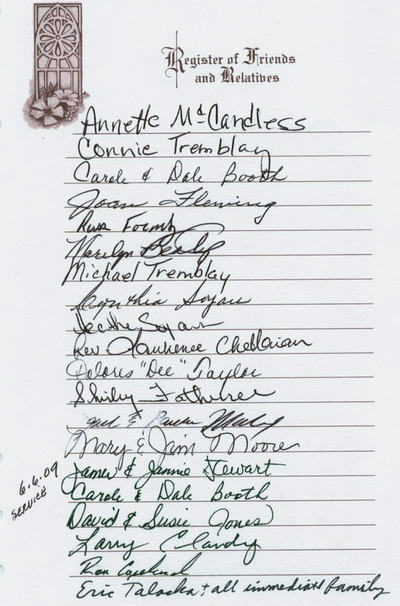 Register of Friends
and Relatives
Annette McCandless
Connie Tremblay
Carole & Dale Booth
Joan Fleming
Marilyn
Michael Tremblay
Cynthia Sojan
Sojan
Rev Lawrence Chellaian
Delores "Dee" Taylor
Shirley
&
Mary & Jim Moore
James & Jannie Stewart
6.6.09
SERVICE
Carole & Dale Booth
David & Susie Jones
Larry Clardy
Ron
Eric Talaska + all immediate family